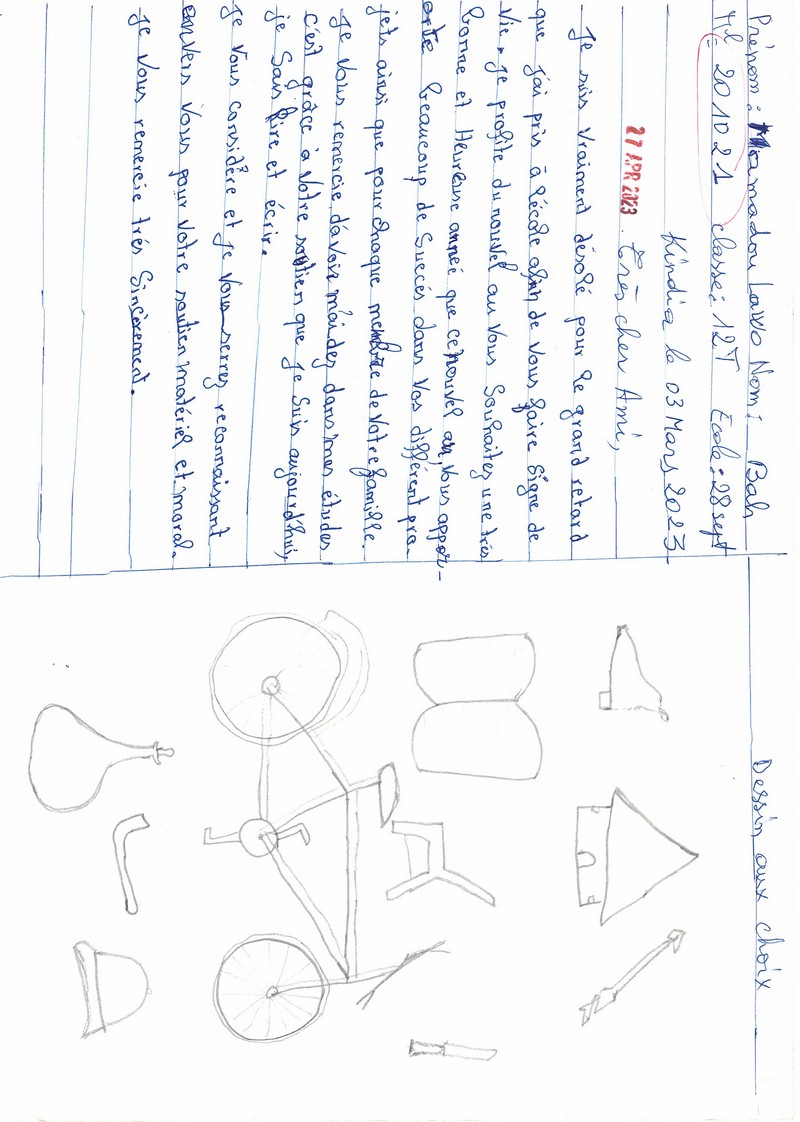 Prénom: Mamadou Lawo Nom: Bah
Ml: 201021 classe: 12T Ecole: 28 sept
Kindia le 03 Mars 2023
27 APR 2023
Très cher Ami,
Je suis vraiment désolé pour le grand retard
que j'ai pris à l'école afin de vous faire signe de
vie. Je profite du nouvel an vous souhaites une très
bonne et Heureuse année que ce nouvel an, vous appor-
orte beaucoup de succès dans vos différent pro.
jets ainsi que pour chaque membre de votre famille.
Je vous remercie d'avoir m'aidez dans mes études
c'est grâce à votre soutien que je suis aujourd'hui,
je sais lire et écrire.
Je vous considère et je vous serres reconnaissant
envers vous pour votre soutien matériel et moral.
Je vous remercie très sincèrement.
Dessin aux choix